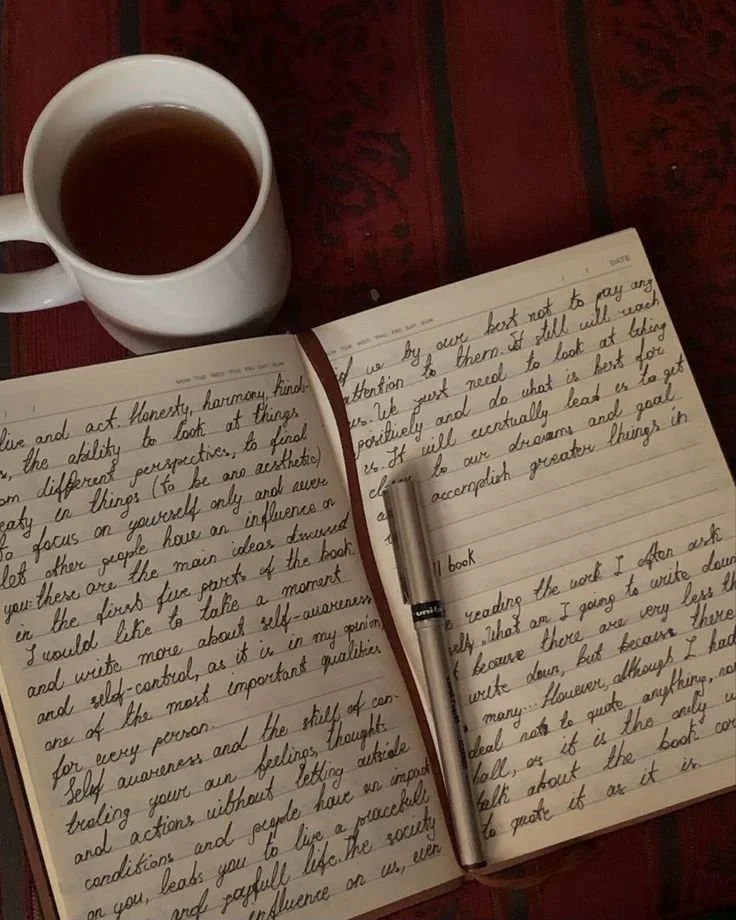 MON TUE WED THU FRI SAT SUN
live and act. Honesty, harmony, kind-
the ability to look at things
different perspectives, to find
in things (to be ano aesthetic)
to focus on yourself only and never
let other people have an influence on
you: these are the main ideas discussed
in the first five parts of the book.
I would like to take a moment
and write more about self-awareness
and self-control, as it is in my opinion
one of the most important qualities
for every person.
Self awareness and the skill of con-
troling your own feelings, thoughts
and actions without letting outside
conditions and people have an impact
on you, leads you to live a peacefull
and joyfull life. The society
influence on us, even
TUE WED THU FRI SAT SUN
DATE
if we by our best not to pay any
attention to them. It still will reach
us. We just need to look at thing
positively and do what is best for
us. It will eventually lead us to get
to our dreams and goal
accomplish greater things in
book
reading the work I often ask
What am I going to write down
because there are very less th
write down, but because there
many... However, although I had
deal not to quote anything,
as it is the only
talk about the book
to quote it as it is.
uni